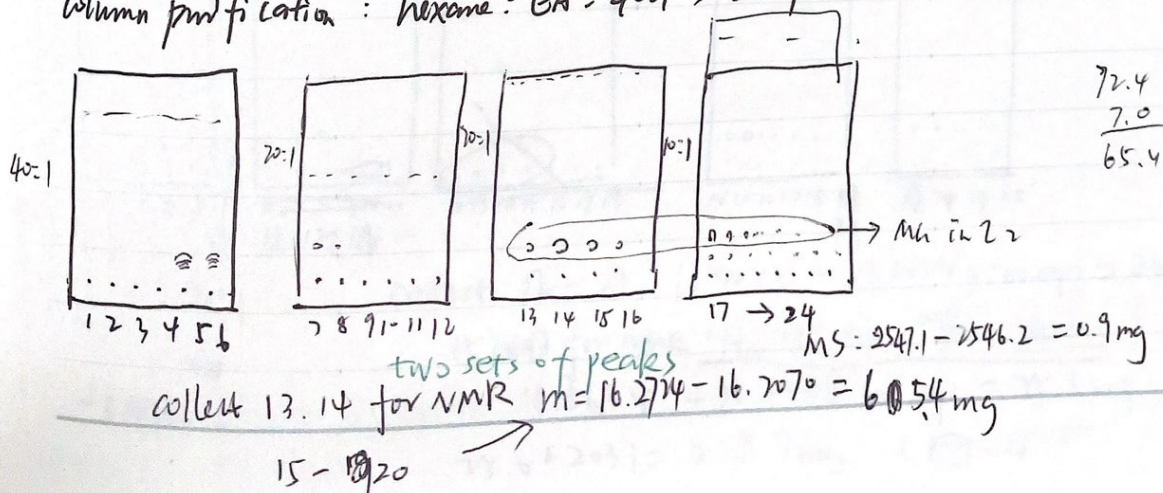 column purification : hexane: EA
72.4
7.0
65.4
40=1
20=1
20=1
10=1
1 2 3 4 5 6
7 8 9 1- 11 12
13 14 15 16
17 → 24
MS: 2547.1 - 2546.2 = 0.9 mg
two sets of peaks
collect 13.14 for NMR m= 16.2724 - 16.2070 = 65.4 mg
15 - 20